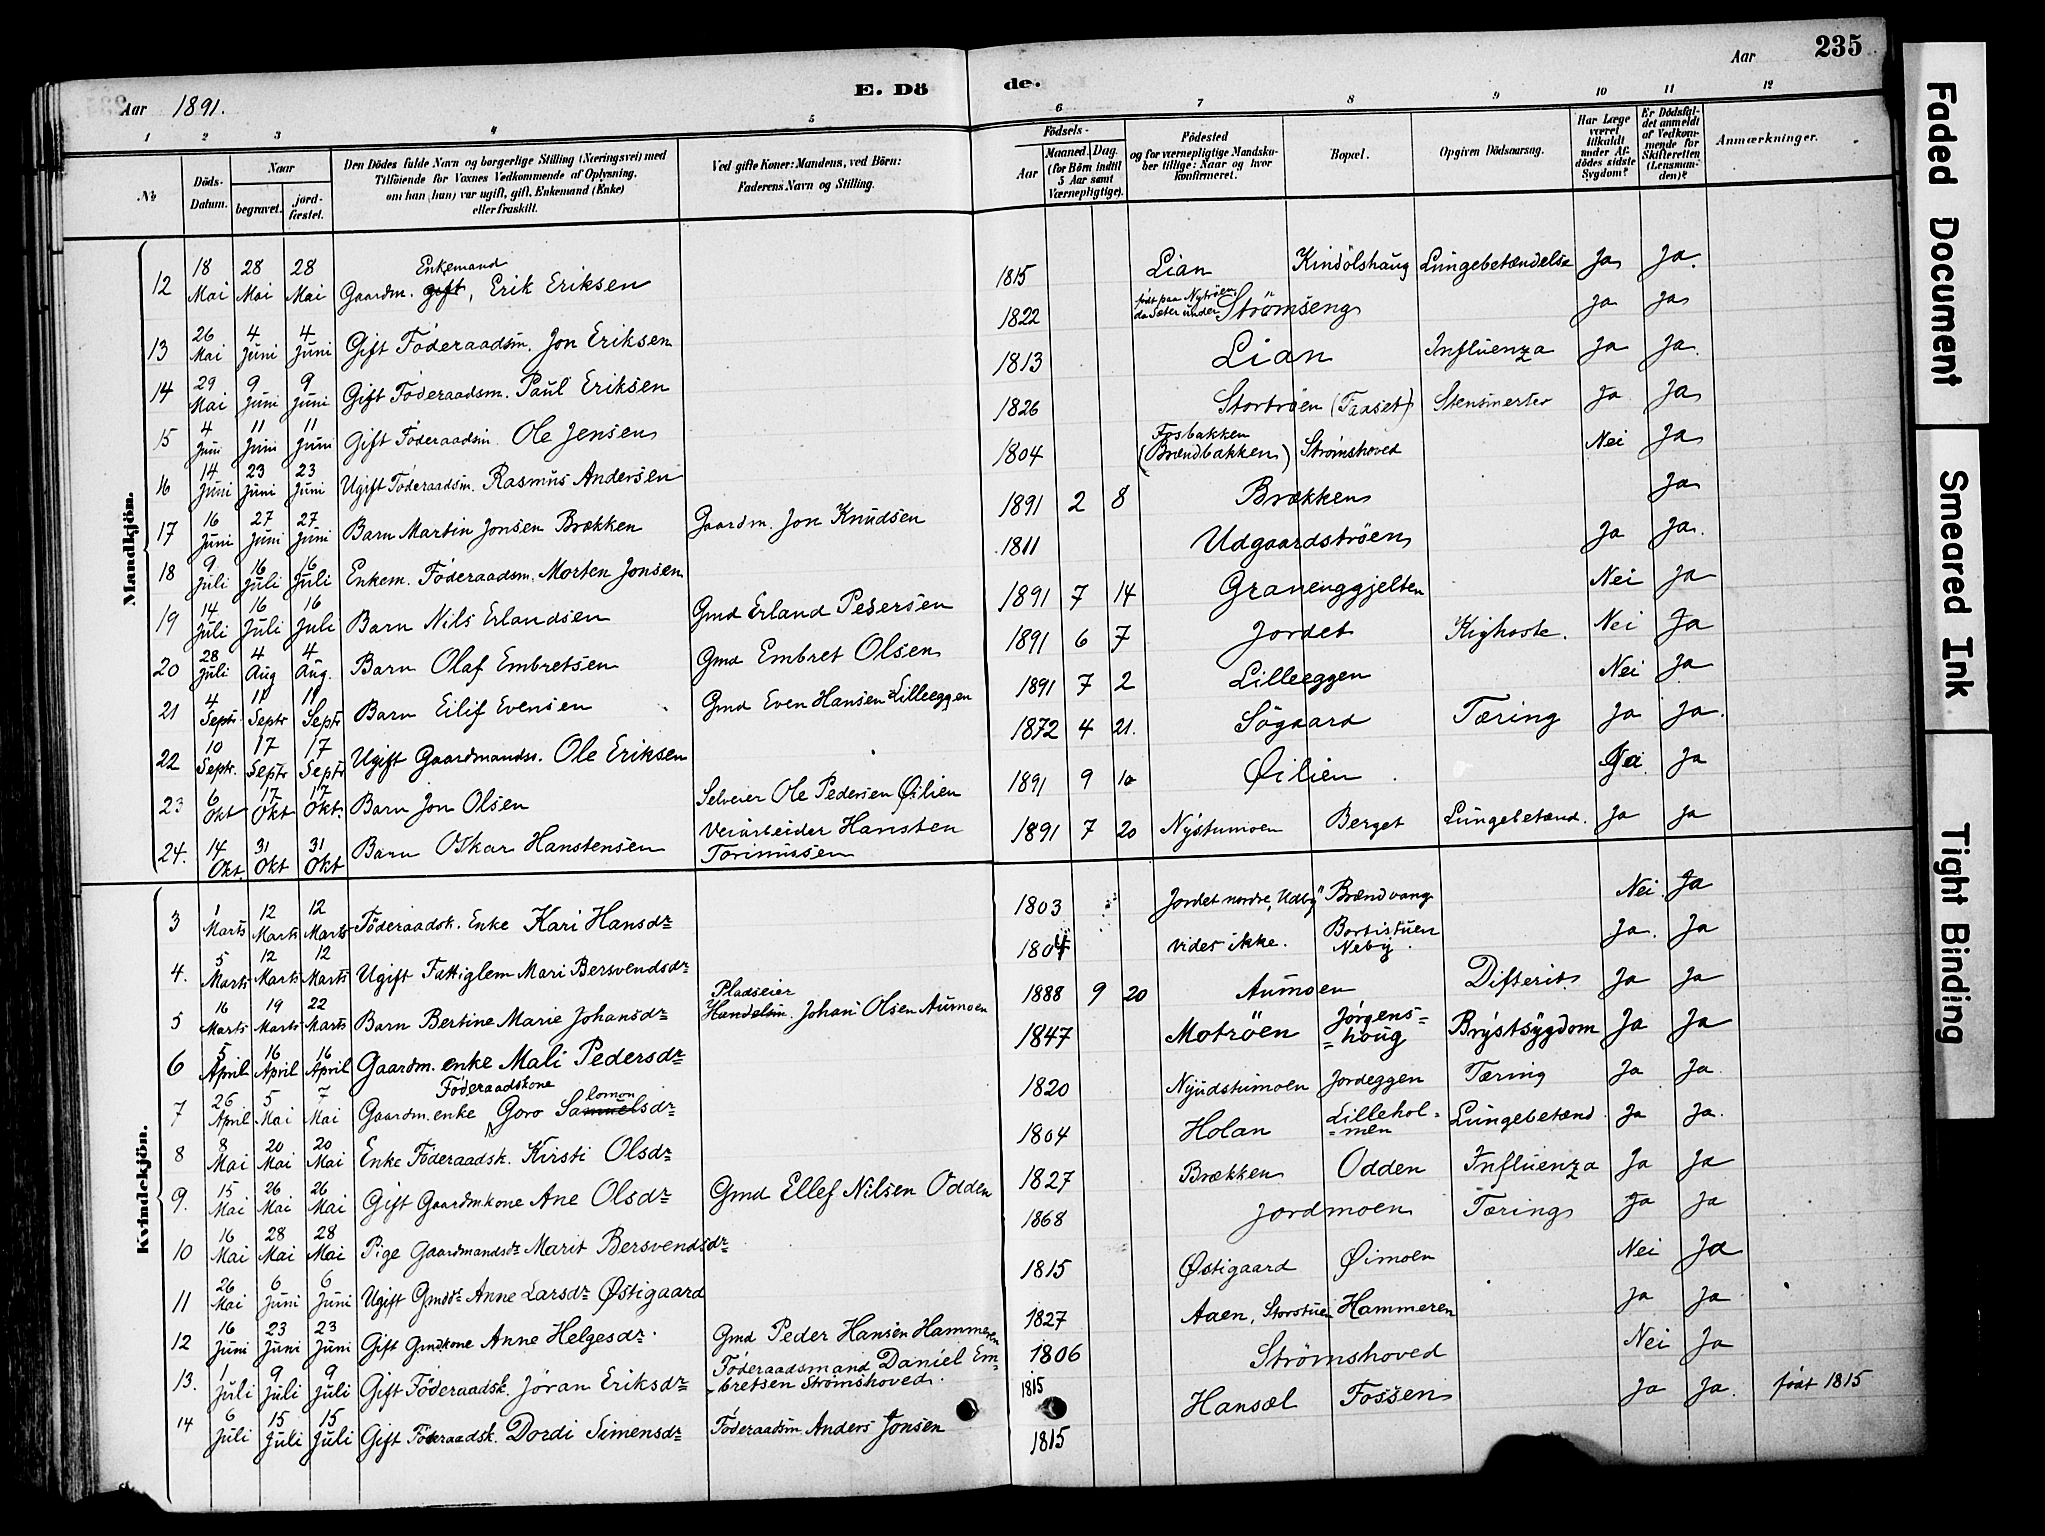 235
Aar 1891.
E. Dö de.
Aar
1 2 3 4 5 6 7 8 9 10 11 12
No
Döds-Datum.
Naar
begravet.
jord-fæstet.
Den Dödes fulde Navn og borgerlige Stilling (Næringsvei) med
Tilföiende for Voxnes Vedkommende af Oplysning,
om han (hun) var ugift, gift, Enkemand (Enke)
eller fraskilt.
Ved gifte Koner: Mandens, ved Börn:
Faderens Navn og Stilling.
Födsels-
Aar
Maaned. Dag.
(for Börn indtil
5 Aar samt
Værnepligtige).
Födested
og for værnepligtige Mandska-
ber tillige: Naar og hvor
konfirmeret.
Bopæl.
Opgiven Dödsaarsag.
Har Læge
været
tilkaldt
under Af-
dödes sidste
Sygdom?
Er Dödsfal-
det anmeldt
af Vedkom-
mende for
Skifteretten
(Lensman-
den)?
Anmærkninger.
Mandkjön.
12 18 Mai 28 Mai 28 Mai Gaardm. gift, Enkemand Erik Eriksen 1815 Lian Kindölshaug Lungebetændelse Ja Ja.
13 26 Mai 4 Juni 4 Juni Gift Föderaadsm. Jon Eriksen 1822 født paa Nytröen, da Sæter under Strömseng Ja Ja
14 29 Mai 9 Juni 9 Juni Gift Föderaadsm. Paul Eriksen 1813 Lian Influenza Ja Ja.
15 4 Juni 11 Juni 11 Juni Gift Föderaadsm. Ole Jensen 1826 Stortröen (Taaset) Stensmerter Ja Ja
16 14 Juni 23 Juni 23 Juni Ugift Föderaadsm. Rasmus Andersen 1804 Fosbakken (Brændbakken) Strømshoved Nei Ja
17 16 Juni 27 Juni 27 Juni Barn Martin Jonsen Brækken Gaardm. Jon Knudsen 1891 2 8 Brækken Ja
18 9 Juli 16 Juli 16 Juli Enkem. Föderaadsm. Morten Jonsen 1811 Udgaardströen Ja Ja.
19 14 Juli 16 Juli 16 Juli Barn Nils Erlandsen Gmd Erland Pedersen 1891 7 14 Granenggjelten Nei Ja
20 28 Juli 4 Aug 4 Aug. Barn Olaf Embretsen Gmd Embret Olsen 1891 6 7 Jordet Kighoste. Nei Ja
21 4 Septr. 11 Septr 11 Septr Barn Eilif Evensen Gmd Even Hansen Lilleeggen 1891 7 2 Lilleeggen Nei Ja
22 10 Septr. 17 Septr 17 Septr Ugift Gaardmandss. Ole Eriksen 1872 4 21. Sögaard Tæring Ja Ja.
23 6 Okt 17 Okt 17 Okt. Barn Jon Olsen Selveier Ole Pedersen Øilien 1891 9 10 Øilien Ja
24. 14 Okt 31 Okt 31 Okt Barn Oskar Hanstensen Veiarbeider Hansten 1891 7 20 Nystumoen Berget Lungebetænd. Ja Ja
Kvindekjön.
3 1 Marts 12 Marts 12 Marts Föderaadsk. Enke Kari Hansdr 1803 Jordet nordre, Brændvang Nei Ja
4. 5 Marts 12 Marts 12 Marts Ugift Fattiglem Mari Bersvendsdr 1804 vides ikke. Neby. Ja. Ja
5 16 Marts 19 Marts 22 Marts Barn Bertine Marie Johansdr Pladseier Handelsm. Johan Olsen Aumoen 1888 9 20 Aumoen Difterit Ja Ja
6 5 April 16 April 16 April Gaardm. enke Mali Pedersdr 1847 Motröen Jørgens=
=houg Brystsygdom Ja Ja
7 26 April 5 Mai 7 Mai Gaardm. enke Föderaadskone Goro Samuelsdr lomon 1820 Nyudstumoen Jordeggen Tæring Ja Ja
8 8 Mai 20 Mai 20 Mai Enke Föderaadsk. Kirsti Olsdr 1804 Holan Lillehol=
=men Lungebetænd. Ja Ja.
9. 15 Mai 26 Mai 26 Mai Gift Gaardmkone Ane Olsdr Gmd Ellef Nilsen Odden 1827 Brækken Odden Influenza Ja Ja
10 16 Mai 28 Mai 28 Mai Pige Gaardmandsdr Marit Bersvendsdr 1868 Jordmoen Tæring Ja Ja
11 26 Mai 6 Juni 6 Juni Ugift Gmddr Anne Larsdr Østigaard 1815 Østigaard Øimoen Nei Ja
12 16 Juni 23 Juni 23 Juni Gift Gmdkone Anne Helgesdr Gmd Peder Hansen Hammeren 1827 Aaen, Storstuen Hammeren Ja Ja
13. 1 Juli 9 Juli 9 Juli Gift Föderaadsk. Jöran Eriksdr Föderaadsmand Daniel Em=
bretsen Strömshoved. 1806 Strömshoved Nei Ja
14 6 Juli 15 Juli 15 Juli Gift Föderaadsk. Dordi Simensdr Föderaadsm. Anders Jonsen 1815 1815 Hansæl Fossen Ja Ja. født 1815
Faded Document
Smeared Ink
Tight Binding